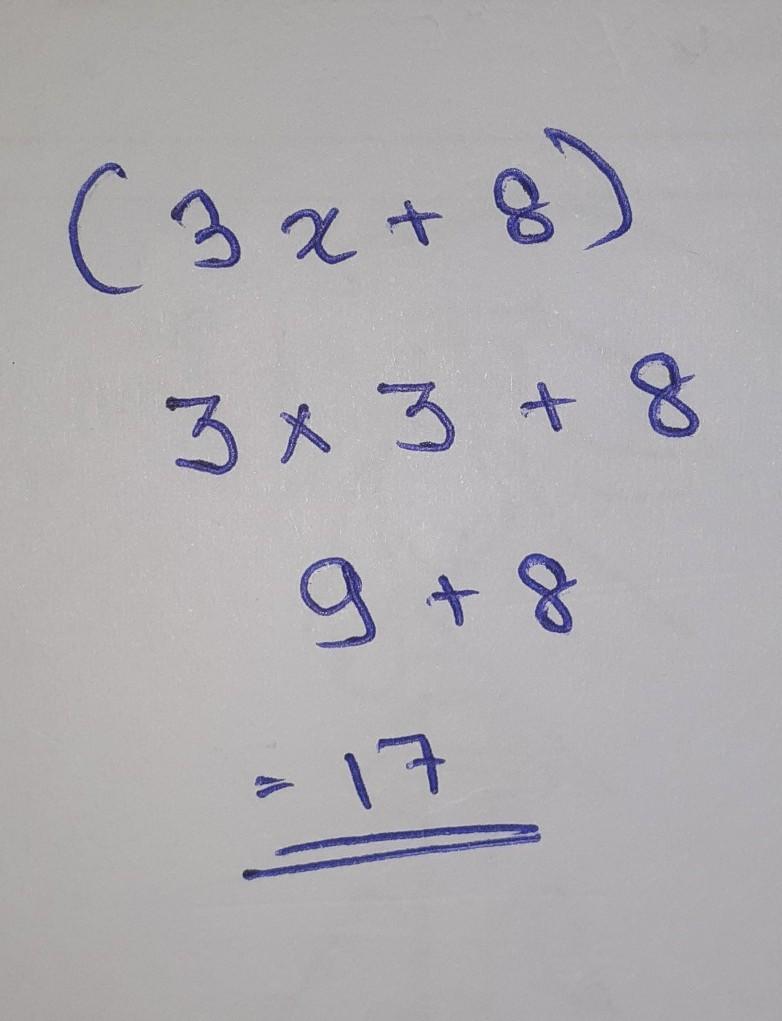 (3x + 8)
3 × 3 + 8
9 + 8
= 17